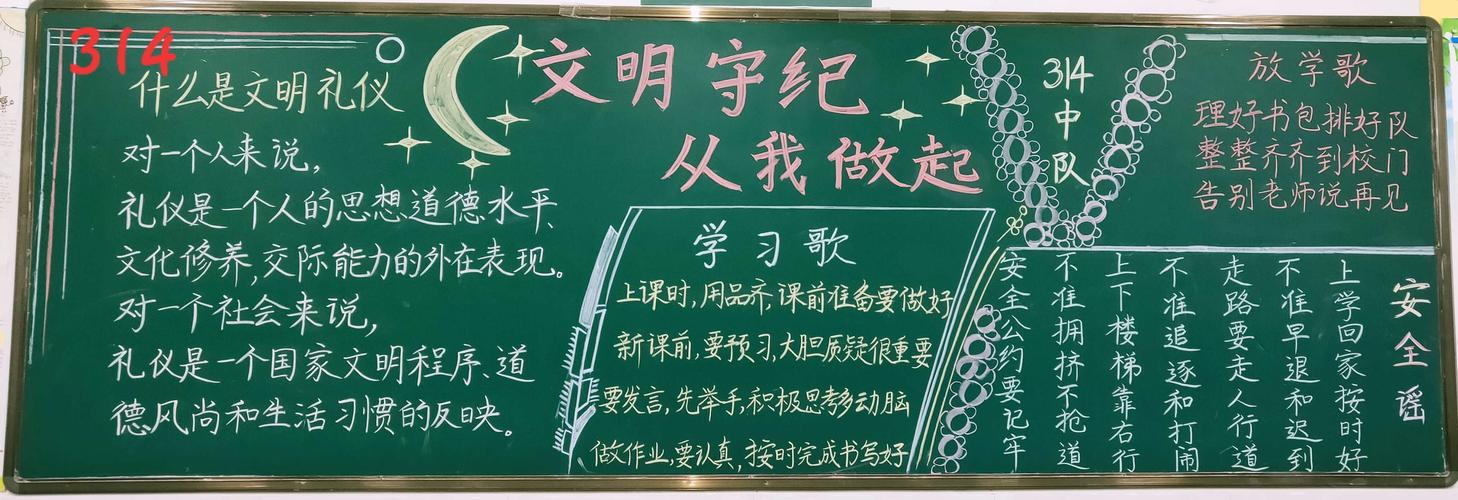 314
什么是文明礼仪
对一个人来说，
礼仪是一个人的思想道德水平、
文化修养，交际能力的外在表现。
对一个社会来说，
礼仪是一个国家文明程序、道
德风尚和生活习惯的反映。
文明守纪
从我做起
学习歌
上课时，用品齐，课前准备要做好
新课前，要预习，大胆质疑很重要
要发言，先举手，积极思考多动脑
做作业，要认真，按时完成书写好
314
中
队
放学歌
理好书包排好队
整整齐齐到校门
告别老师说再见
安全谣
上学回家按时好
不准早退和迟到
走路要走人行道
不准追逐和打闹
上下楼梯靠右行
不准拥挤不抢道
安全公约要记牢